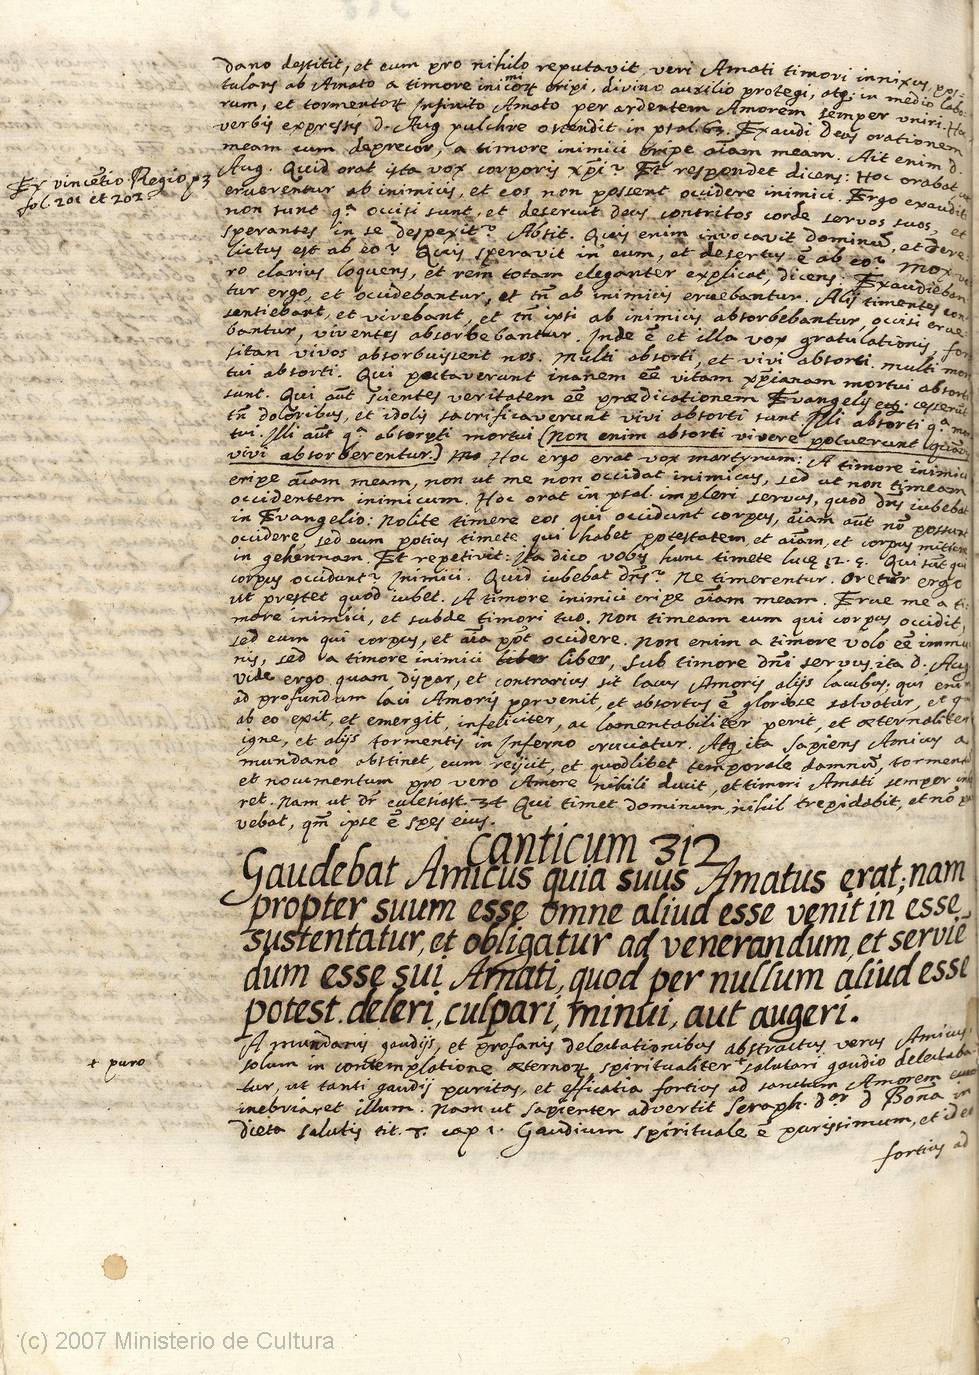 dano destitit, et eum pro nihilo reputavit veri Amati timori innixus, pos-
tulans ab Amato a timore inimicoꝝ eripi, divino auxilio protegi, atq; in medio labo-
rum, et tormentoꝝ Infinito Amato per ardentem Amorem semper uniri. Hoc
verbis expressis d. Aug pulchre ostendit in psal. 63. Exaudi Deus orationem
meam cum deprecor, a timore inimici eripe aīam meam. Ait enim d.
Ex vincētio Regio p 3
fol. 201 et 202
Aug. Quid orat ista vox corporis xp̄i? Et respondet dicens: Hoc orabat, ut
eruerentur ab inimicis, et eos non possent occidere inimici. Ergo exauditi
non sunt qª occisi sunt, et deseruit deus contritos corde servos suos, et
sperantes in se despexit? Absit. Quis enim invocavit dominū, et dere-
lictus est ab eo? Quis speravit in eum, et desertus ē ab eo? Mox ve
ro clarius loquens, et rem totam eleganter explicat, dicens: Exaudieban
tur ergo, et occidebantur, et tn̄ ab inimicis eruebantur. Alij timentes con
sentiebant, et vivebant, et tn̄ ipsi ab inimicis absorbebantur, occisi erue
bantur, viventes absorbebantur. Inde ē et illa vox gratulationis, for
sitan vivos absorbuissent nos. Multi absorti, et vivi absorti. multi mor
tui absorti. Qui putaverunt inanem eē vitam xp̄ianam mortui absorti
sunt. Qui aūt scientes veritatem eē prædicationem Evangelij cesserūt
tn̄ doloribus, et idolis sacrificaverunt vivi absorti sunt Illi absorti qª mor
tui. Illi aūt qª absorpti mortui (Non enim absorti vivere potuerunt
vivi absorberentur.) Hoc ergo erat vox martyrum: A timore inimici
eripe aīam meam, non ut me non occidat inimicus, sed ut non timeam
occidentem inimicum. Hoc orat in psal. impleri servus, quod dn̄s iubebat
in Evangelio: Nolite timere eos qui occidunt corpus, aīam aūt nō possunt
occidere, sed eum potius timete qui habet potestatem, et aīam, et corpus mittere
in gehennam. Et repetivit: Ita dico vobis hunc timete lucę 12. 5. Qui sūt qui
corpus occidunt? Inimici. Quid iubebat dn̄s? Ne timerentur. Oretur ergo
ut prestet quod iubet. A timore inimici eripe aīam meam. Erue me a ti-
more inimici, et subde timori tuo. Non timeam eum qui corpus occidit,
sed eum qui corpus, et aīa pōt occidere. Non enim a timore volo eē immu
nis, sed a timore inimici liber, sub timore dn̄i servus ita d. Aug
Vide ergo quam dispar, et contrarius sit lacus Amoris alijs lacubus; qui enim
ad profundum laci Amoris pervenit, et absortus ē gloriose salvatur, et qui
ab eo exit, et emergit, infeliciter, ac lamentabiliter perit, et æternaliter
igne, et alijs tormentis in Inferno cruciatur. Atq; ita Sapiens Amicus a
mundano abstinet, eum reijcit, et quodlibet temporale damnū, tormentū
et nocumentum pro vero Amore nihili ducit, et timori Amati semper inhæ
ret. Nam ut dr̄ ecclesiast. 34 Qui timet dominum, nihil trepidabit, et nō pa
vebat, qm̄ ipse ē spes eius.
Canticum 312
Gaudebat Amicus quia suus Amatus erat; nam
propter suum esse omne aliud esse venit in esse
sustentatur, et obligatur ad venerandum, et serviē
dum esse sui Amati, quod per nullum aliud esse
potest. deleri, culpari, minui, aut augeri.
A mundanis gaudijs, et profanis delectationibus abstractus verus Amicus
+ puro
solum in contemplatione æternoꝝ spiritualiter + salutari gaudio delectaba
tur, ut tanti gaudij puritas, et efficatia fortius ad sanctum Amorem
inebriaret illum. Nam ut sapienter advertit Seraph. dor d Bonā in
dieta salutis tit. 8. cap 1. Gaudium spirituale ē purissimum, et ideo
fortius ad
(c) 2007 Ministerio de Cultura